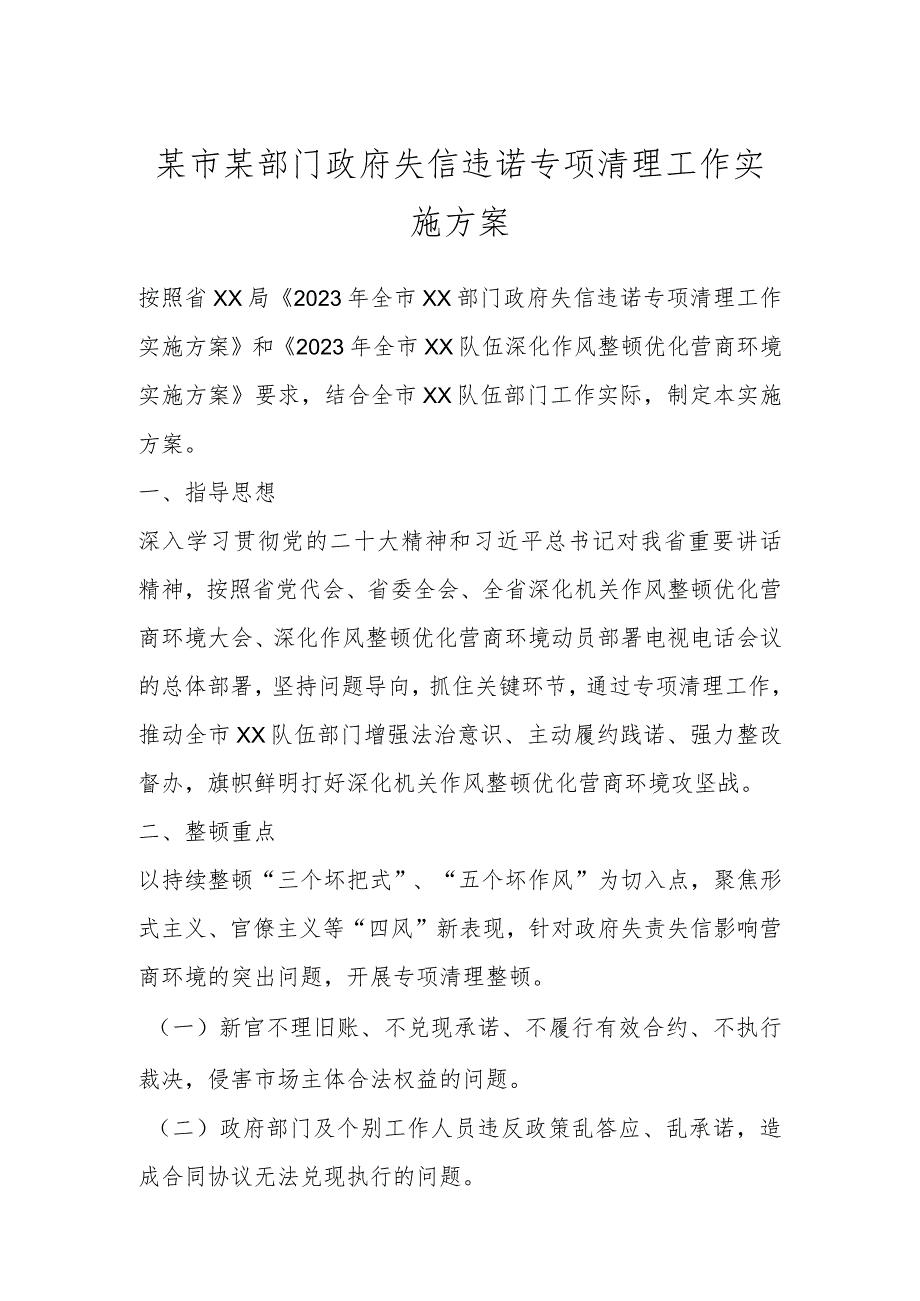 某市某部门政府失信违诺专项清理工作实
施方案
按照省XX局《2023年全市XX部门政府失信违诺专项清理工作
实施方案》和《2023年全市XX队伍深化作风整顿优化营商环境
实施方案》要求，结合全市XX队伍部门工作实际，制定本实施
方案。
一、指导思想
深入学习贯彻党的二十大精神和习近平总书记对我省重要讲话
精神，按照省党代会、省委全会、全省深化机关作风整顿优化营
商环境大会、深化作风整顿优化营商环境动员部署电视电话会议
的总体部署，坚持问题导向，抓住关键环节，通过专项清理工作，
推动全市XX队伍部门增强法治意识、主动履约践诺、强力整改
督办，旗帜鲜明打好深化机关作风整顿优化营商环境攻坚战。
二、整顿重点
以持续整顿“三个坏把式”、“五个坏作风”为切入点，聚焦形
式主义、官僚主义等“四风”新表现，针对政府失责失信影响营
商环境的突出问题，开展专项清理整顿。
（一）新官不理旧账、不兑现承诺、不履行有效合约、不执行
裁决，侵害市场主体合法权益的问题。
（二）政府部门及个别工作人员违反政策乱答应、乱承诺，造
成合同协议无法兑现执行的问题。